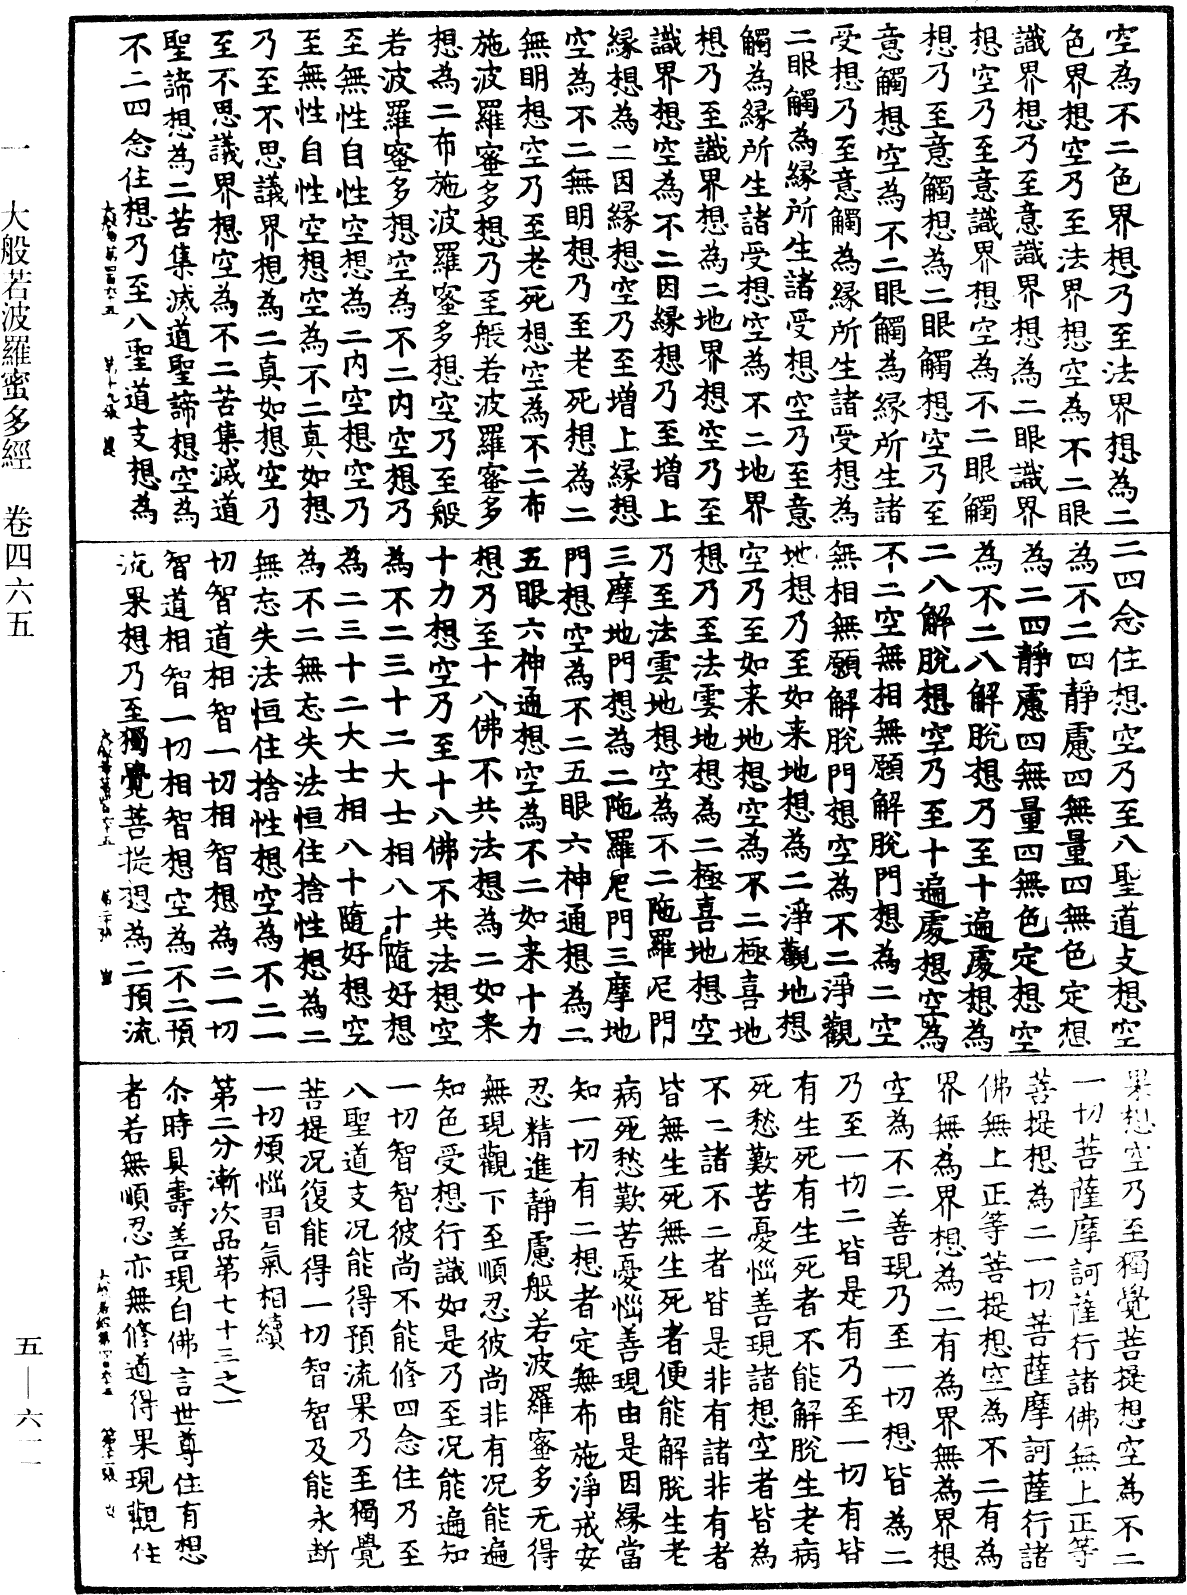 空為不二色界想乃至法界想為二
色界想空乃至法界想空為不二眼
識界想乃至意識界想為二眼識界
想空乃至意識界想空為不二眼觸
想乃至意觸想為二眼觸想空乃至
意觸想空為不二眼觸為緣所生諸
受想乃至意觸為緣所生諸受想為
二眼觸為緣所生諸受想空乃至意
觸為緣所生諸受想空為不二地界
想乃至識界想為二地界想空乃至
識界想空為不二因緣想乃至增上
緣想為二因緣想空乃至增上緣想
空為不二無明想乃至老死想為二
無明想空乃至老死想空為不二布
施波羅蜜多想乃至般若波羅蜜多
想為二布施波羅蜜多想空乃至般
若波羅蜜多想空為不二內空想乃
至無性自性空想為二內空想空乃
至無性自性空想空為不二真如想
乃至不思議界想為二真如想空乃
至不思議界想空為不二苦集滅道
聖諦想為二苦集滅道聖諦想空為
不二四念住想乃至八聖道支想為
二四念住想空乃至八聖道支想空
為不二四靜慮四無量四無色定想
為二四靜慮四無量四無色定想空
為不二八解脫想乃至十遍處想為
二八解脫想空乃至十遍處想空為
不二空無相無願解脫門想為二空
無相無願解脫門想空為不二淨觀
地想乃至如来地想為二淨觀地想
空乃至如来地想空為不二極喜地
想乃至法雲地想為二極喜地想空
乃至法雲地想空為不二陁羅尼門
三摩地門想為二陁羅尼門三摩地
門想空為不二五眼六神通想為二
五眼六神通想空為不二如来十力
想乃至十八佛不共法想為二如来
十力想空乃至十八佛不共法想空
為不二三十二大士相八十隨好想
為二三十二大士相八十隨好想空
為不二無忘失法恒住捨性想為二
無忘失法恒住捨性想空為不二一
切智道相智一切相智想為二一切
智道相智一切相智想空為不二預
流果想乃至獨覺菩提想為二預流
果想空乃至獨覺菩提想空為不二
一切菩薩摩訶薩行諸佛無上正等
菩提想為二一切菩薩摩訶薩行諸
佛無上正等菩提想空為不二有為
界無為界想為二有為界無為界想
空為不二善現乃至一切想皆為二
乃至一切二皆是有乃至一切有皆
有生死有生死者不能解脫生老病
死愁歎苦憂惱善現諸想空者皆為
不二諸不二者皆是非有諸非有者
皆無生死無生死者便能解脫生老
病死愁歎苦憂惱善現由是因緣當
知一切有二想者定無布施淨戒安
忍精進靜慮般若波羅蜜多无得
無現觀下至順忍彼尚非有况能遍
知色受想行識如是乃至况能遍知
一切智智彼尚不能修四念住乃至
八聖道支况能得預流果乃至獨覺
菩提况復能得一切智智及能永斷
一切煩惱習氣相續
第二分漸次品第七十三之一
尒時具壽善現白佛言世尊住有想
者若無順忍亦無修道得果現觀住
一 大般若波羅蜜多經 卷四六五
五—六一一